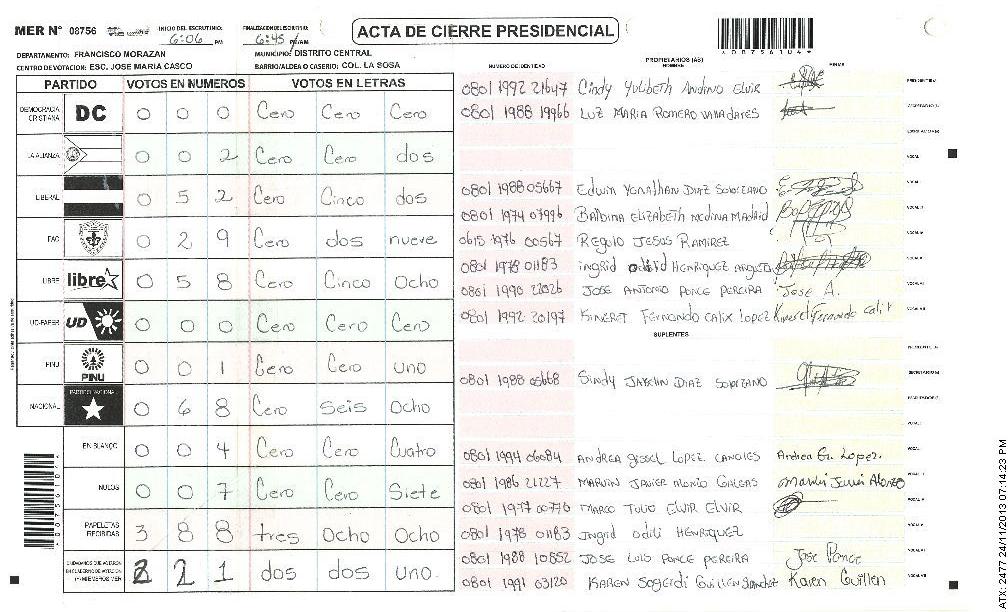 MER N° 08756
INICIO DEL ESCRUTINIO: 6:06 PM
FINALIZACION DEL ESCRUTINIO: 6:45 PM/AM
ACTA DE CIERRE PRESIDENCIAL
DEPARTAMENTO: FRANCISCO MORAZAN
MUNICIPIO: DISTRITO CENTRAL
CENTRO DE VOTACION: ESC. JOSE MARIA CASCO
BARRIO/ALDEA O CASERIO: COL. LA SOSA
PARTIDO VOTOS EN NUMEROS VOTOS EN LETRAS
DEMOCRACIA CRISTIANA DC 0 0 0 Cero Cero Cero
LA ALIANZA 0 0 2 Cero Cero dos
LIBERAL 0 5 2 Cero Cinco dos
PAC 0 2 9 Cero dos nueve
LIBRE libre 0 5 8 Cero Cinco Ocho
UD-FAPER UD 0 0 0 Cero Cero Cero
PINU PINU 0 0 1 Cero Cero uno
NACIONAL PARTIDO NACIONAL 0 6 8 Cero Seis Ocho
EN BLANCO 0 0 4 Cero Cero Cuatro
NULOS 0 0 7 Cero Cero Siete
PAPELETAS RECIBIDAS 3 8 8 tres Ocho Ocho
CIUDADANOS QUE VOTARON 2 2 1 dos dos uno.
NUMERO DE IDENTIDAD PROPIETARIOS (AS) NOMBRE FIRMA
0801 1992 21647 Cindy Yulibeth Andino Elvir
0801 1988 19966 LUZ MARIA ROMERO
0801 1988 05667 Edwin YONATHAN DIAZ
0801 1974 07996 BALBINA ELIZABETH MEDINA MADRID
0615 1976 00567 JESUS RAMIREZ
0801 1978 01183 ingrid HENRIQUEZ
0801 1990 22026 JOSE ANTONIO PONCE PEREIRA Jose A.
0801 1992 20197 KINERET FERNANDO CALIX LOPEZ Kineret Fernando Calix
SUPLENTES
0801 1988 05668 Sindy DIAZ
0801 1994 06084 ANDREA gissel LOPEZ Andrea G. Lopez.
0801 1986 21227 MARVIN JAVIER Marvin Javier Alonzo
0801 1977 00776 MARCO TULIO ELVIR ELVIR
0801 1978 01183 Ingrid HENRIQUEZ
0801 1988 10852 JOSE LUIS PONCE PEREIRA Jose Ponce
0801 1991 03120 KAREN Guillen Sanchez Karen Guillen
ATX 2477 24/11/2013 07:14:23 PM